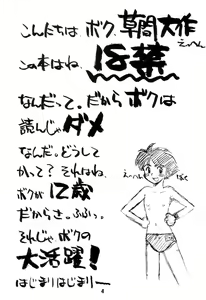 こんにちは、ボク、草間大作
えっへん
この本はね、18禁
なんだって。だからボクは
読んじゃダメ
なんだ。どうして
かって？それはね、
ボクが12歳
だからさ。ふふっ。
それじゃボクの
大活躍！
はじまりはじまりー
えっへん
ぼく
4